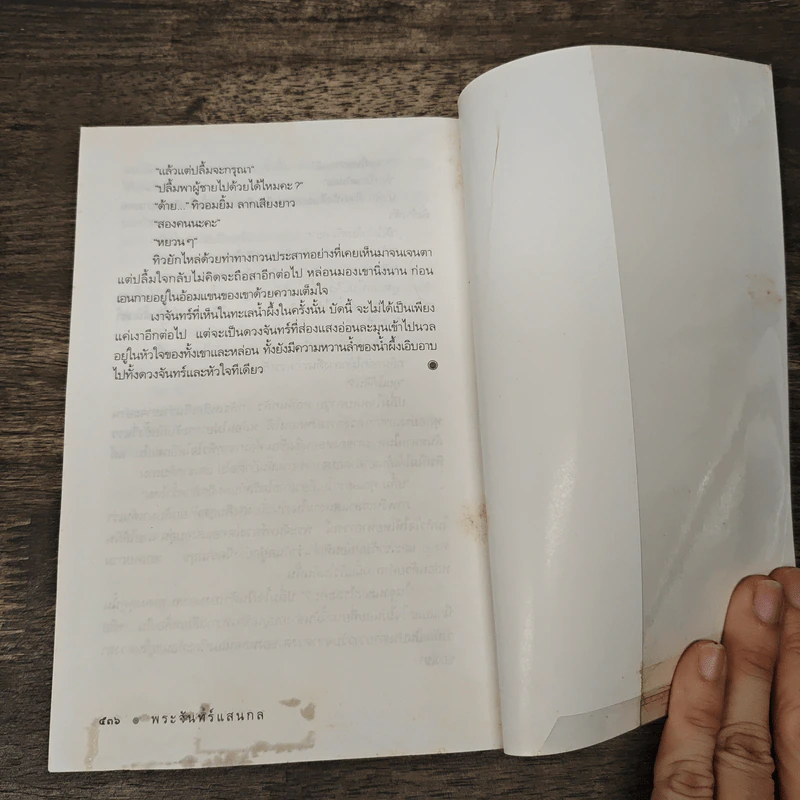 "แล้วแต่ปลื้มจะกรุณา"
"ปลื้มพาผู้ชายไปด้วยได้ไหมคะ ?"
"ด้าย..." ทิวอมยิ้ม ลากเสียงยาว
"สองคนนะคะ"
"หยวน ๆ"
ทิวยักไหล่ด้วยท่าทางกวนประสาทอย่างที่เคยเห็นมาจนเจนตา
แต่ปลื้มใจกลับไม่คิดจะถือสาอีกต่อไป หล่อนมองเขานิ่งนาน ก่อน
เอนกายอยู่ในอ้อมแขนของเขาด้วยความเต็มใจ
เงาจันทร์ที่เห็นในทะเลน้ำผึ้งในครั้งนั้น บัดนี้ จะไม่ได้เป็นเพียง
แค่เงาอีกต่อไป แต่จะเป็นดวงจันทร์ที่ส่องแสงอ่อนละมุนเข้าไปนวล
อยู่ในหัวใจของทั้งเขาและหล่อน ทั้งยังมีความหวานล้ำของน้ำผึ้งเอิบอาบ
ไปทั้งดวงจันทร์และหัวใจทีเดียว
๔๓๖ พระจันทร์แสนกล